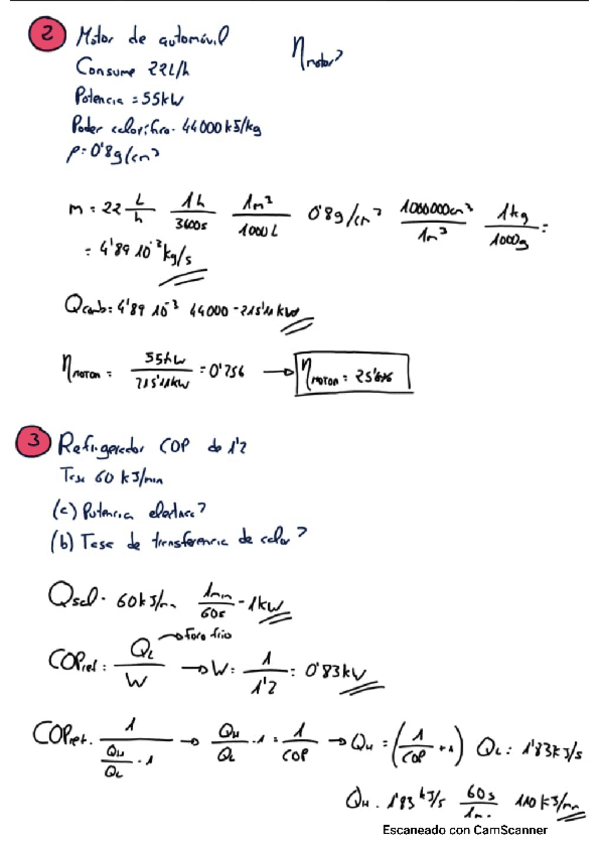 2 Motor de automóvil
η motor?
Consume 22L/h
Potencia = 55kW
Poder calorífico. 44000 kJ/kg
ρ: 0'8g/cm³
m = 22 L/h 1h/3600s 1m³/1000L 0'8g/cm³ 1000000cm³/1m³ 1kg/1000g =
= 4'89 10⁻³ kg/s
Qcomb: 4'89 10⁻³ 44000 = 215'11 kW
η MOTOR = 55kW/215'11kW = 0'256 → η MOTOR = 25'6%
3 Refrigerador COP de 1'2
Tasa 60 kJ/min
(a) Potencia eléctrica?
(b) Tasa de transferencia de calor?
60kJ/min 1min/60s = 1kW
COPref: QL/W → foco frio → W: 1/1'2 = 0'83kW
COPref. 1/(QH/QL - 1) → QH/QL - 1 = 1/COP → QH = (1/COP + 1) QL = 1'83kJ/s
QH. 1'83 kJ/s 60s/1m. 110 kJ/min
Escaneado con CamScanner